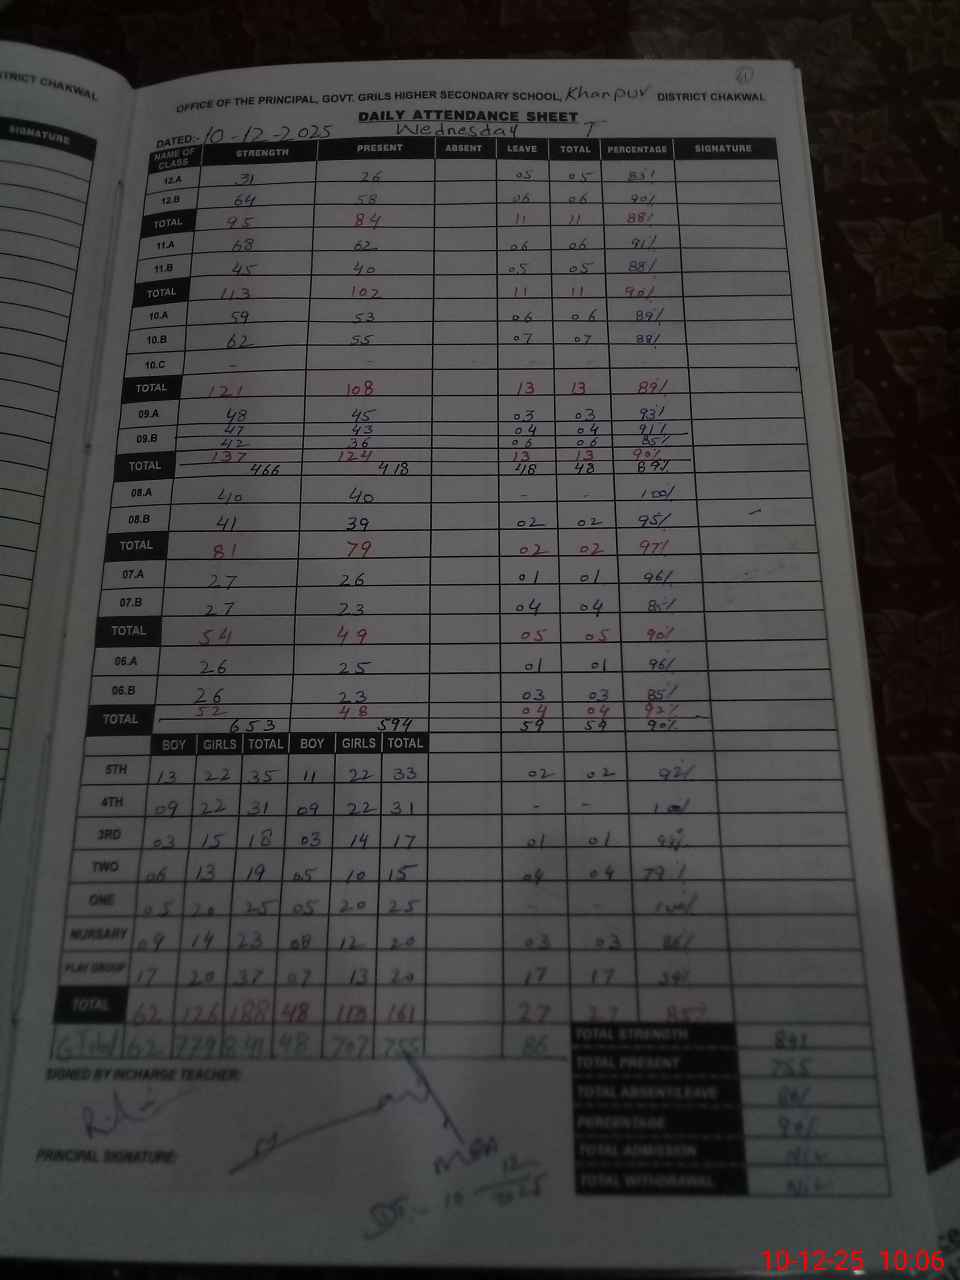 TRICT CHAKWAL
SIGNATURE
OFFICE OF THE PRINCIPAL, GOVT. GRILS HIGHER SECONDARY SCHOOL, Khanpur DISTRICT CHAKWAL
DAILY ATTENDANCE SHEET
DATED:- 10-12-2025 Wednesday T
NAME OF CLASS STRENGTH PRESENT ABSENT LEAVE TOTAL PERCENTAGE SIGNATURE
12.A 31 26 05 05 83%
12.B 64 58 06 06 90%
TOTAL 95 84 11 11 88%
11.A 68 62 06 06 91%
11.B 45 40 05 05 88%
TOTAL 113 102 11 11 90%
10.A 59 53 06 06 89%
10.B 62 55 07 07 88%
10.C - - - -
TOTAL 121 108 13 13 89%
09.A 48 45 03 03 93%
47 43 04 04 91%
09.B 42 36 06 06 85%
137 124 13 13 90%
TOTAL 466 418 48 48 89%
08.A 40 40 - - 100%
08.B 41 39 02 02 95%
TOTAL 81 79 02 02 97%
07.A 27 26 01 01 96%
07.B 27 23 04 04 85%
TOTAL 54 49 05 05 90%
06.A 26 25 01 01 96%
06.B 26 23 03 03 85%
52 48 04 04 92%
TOTAL 653 594 59 59 90%
BOY GIRLS TOTAL BOY GIRLS TOTAL
5TH 13 22 35 11 22 33 02 02 92%
4TH 09 22 31 09 22 31 - - 100
3RD 03 15 18 03 14 17 01 01
TWO 06 13 19 05 10 15 04 04 79%
ONE 05 20 25 05 20 25 - - 100%
NURSARY 09 14 23 08 12 20 03 03 86%
PLAY GROUP 17 20 37 07 13 20 17 17 54%
TOTAL 62 126 188 48 113 161 27 27 85%
G.Total 62 779 841 48 707 755 86
TOTAL STRENGTH 841
TOTAL PRESENT 755
TOTAL ABSENT/LEAVE 86
PERCENTAGE 90%
TOTAL ADMISSION Nil
TOTAL WITHDRAWAL Nil
SIGNED BY INCHARGE TEACHER:
PRINCIPAL SIGNATURE:
MEA
DT:- 10 12 2025
10-12-25 10:06